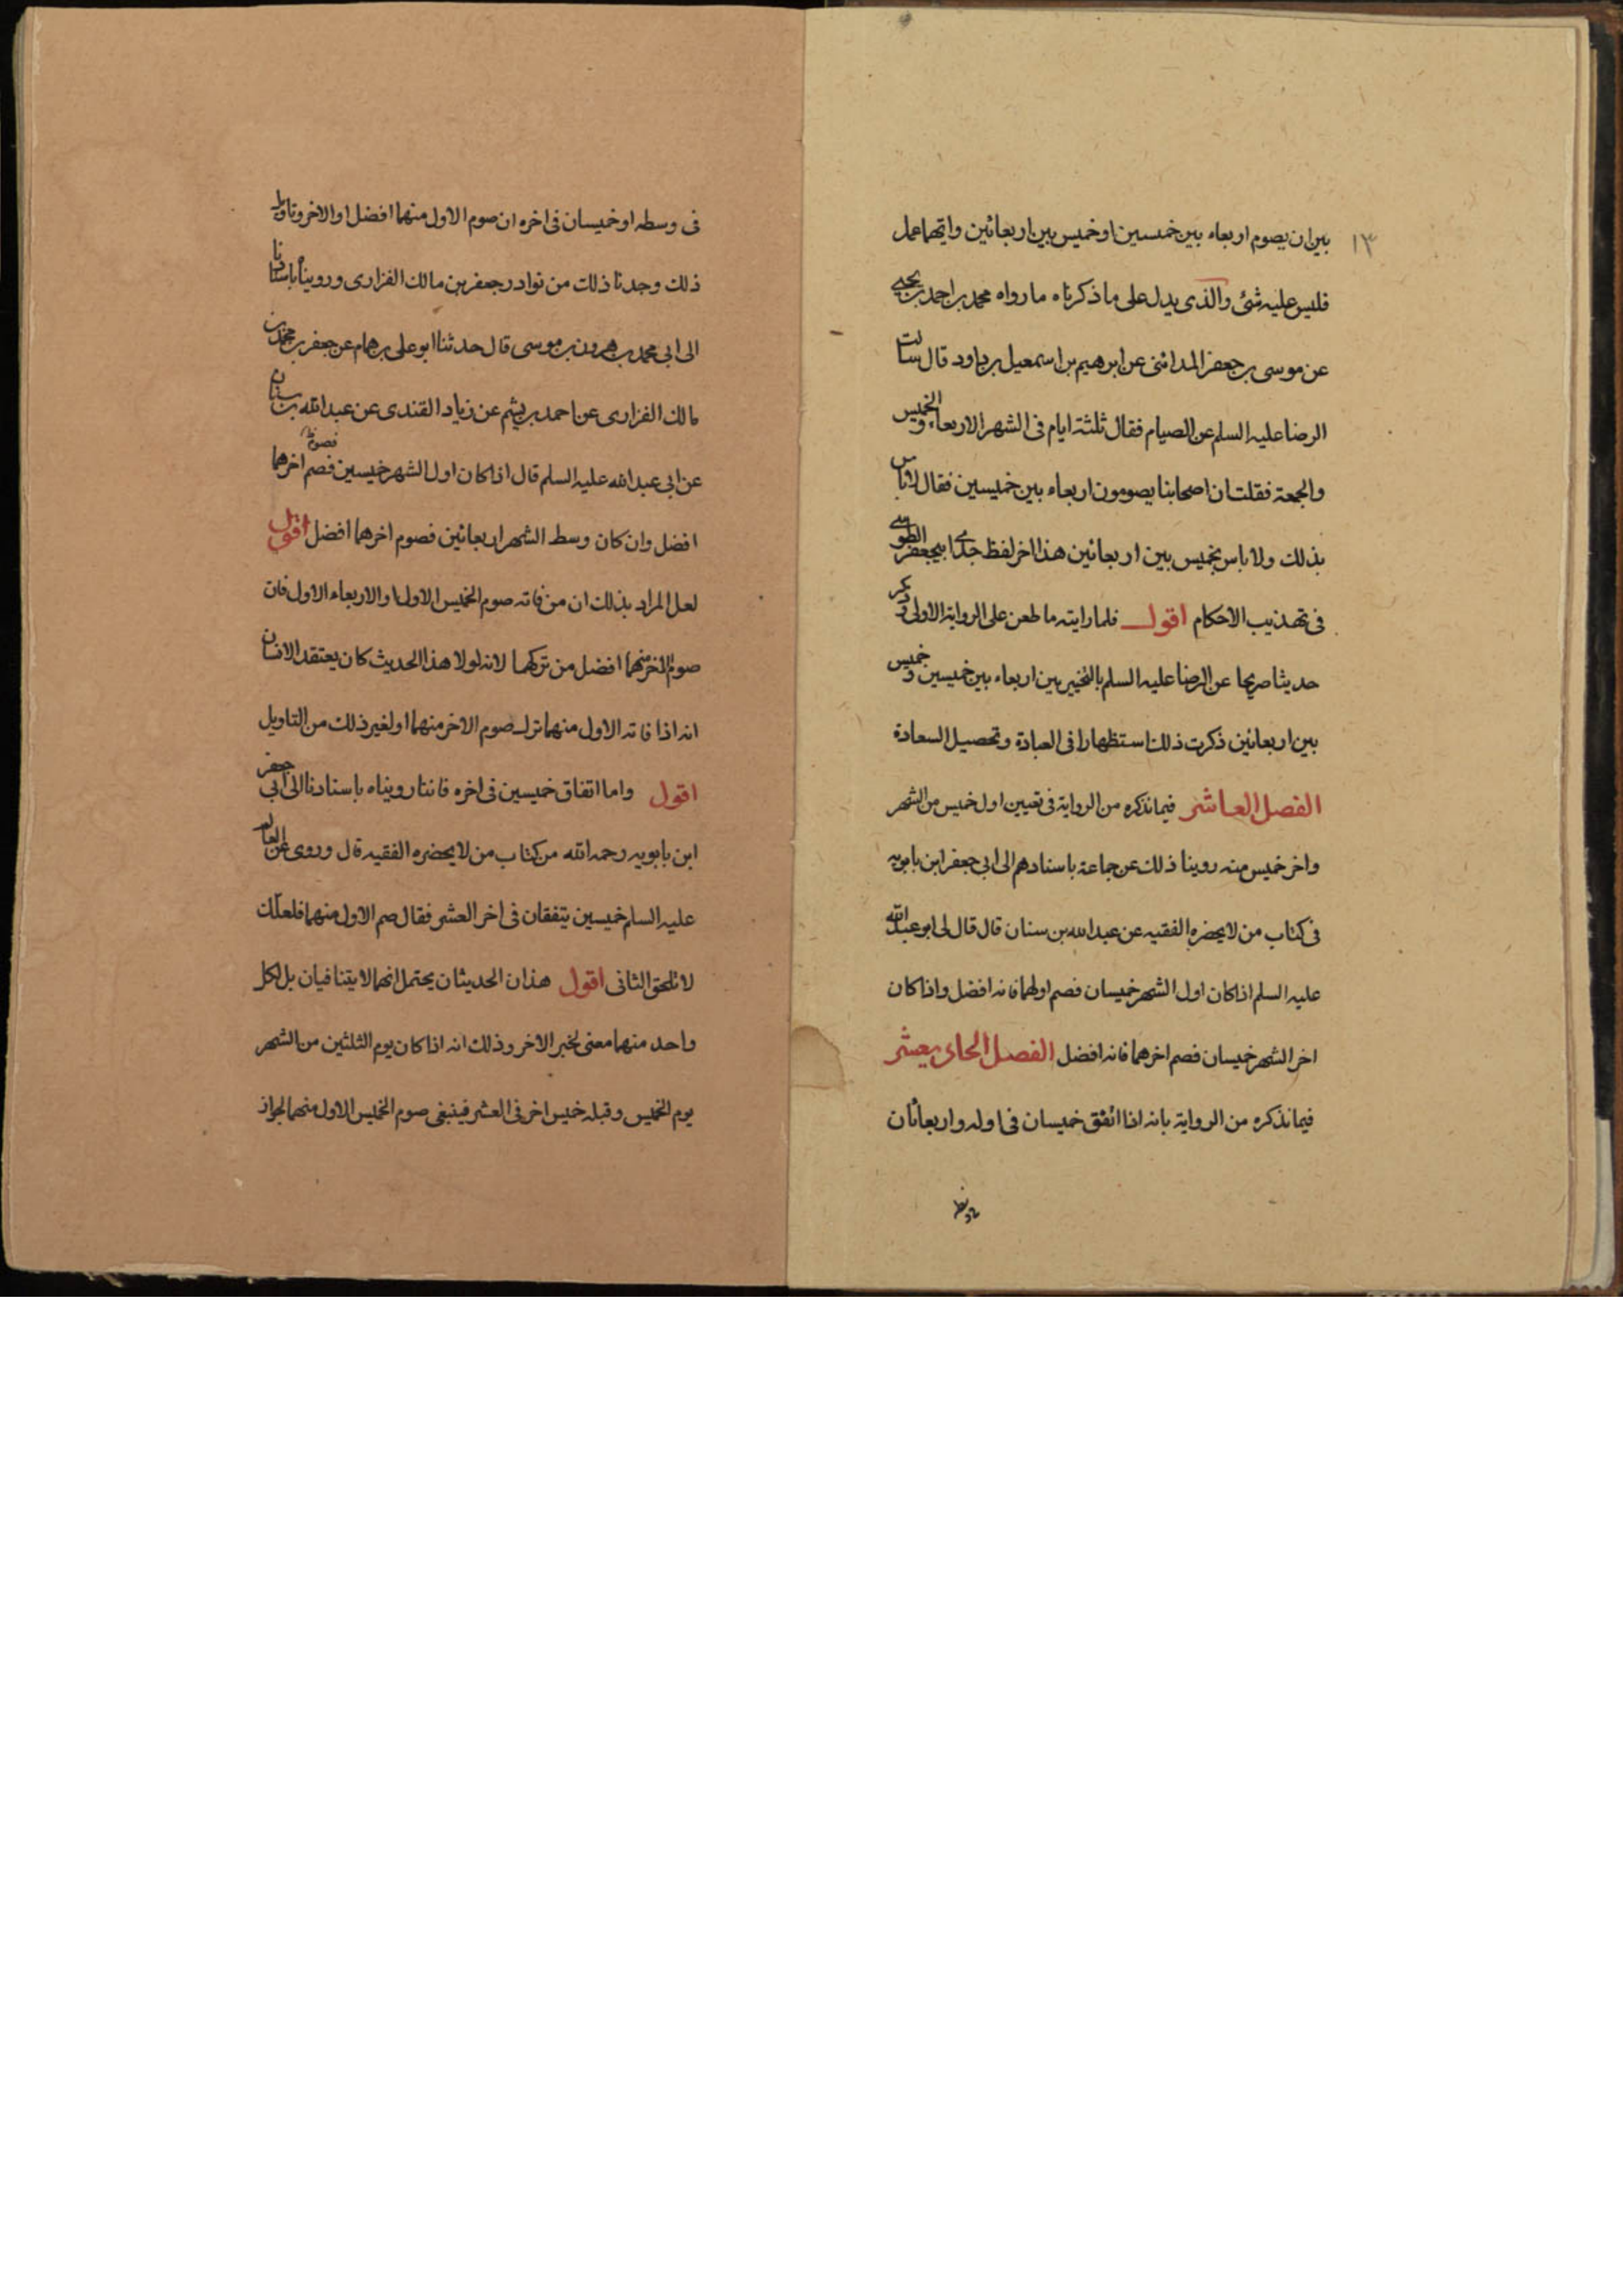 ١٣
بين ان يصوم اربعاء بين خمیسين او خميس بين اربعائين وايهما عمل
فليس عليه شئ والذى يدل على ما ذكرناه ما رواه محمد بن احمد بن يحيى
عن موسى بن جعفر المدائنى عن ابرهيم بن اسمعيل بن داود قال سالت
الرضا عليه السلم عن الصيام فقال ثلثة ايام فى الشهر الاربعاء والخميس
والجمعة فقلت ان اصحابنا يصومون اربعاء بين خميسين فقال لا باس
بذلك ولا باس بخميس بين اربعائين هذا اخر لفظ جدى ابيجعفر الطوسى
فى تهذيب الاحكام اقول فلما رايته ما طعن على الرواية الاولى وذكر
حديثا صريحا عن الرضا عليه السلم بالتخيير بين اربعاء بين خميسين وخميس
بين اربعائين ذكرت ذلك استظهارا فى العبادة وتحصيل السعادة
الفصل العاشر فيما نذكره من الرواية فى تعيين اول خميس من الشهر
واخر خميس منه روينا ذلك عن جماعة باسنادهم الى ابى جعفر ابن بابويه
فى كتاب من لا يحضره الفقيه عن عبد الله بن سنان قال قال لى ابو عبد الله
عليه السلم اذا كان اول الشهر خميسان فصم اولهما فانه افضل واذا كان
اخر الشهر خميسان فصم اخرهما فانه افضل الفصل الحادى عشر
فيما نذكره من الرواية بانه اذا اتفق خميسان فى اوله واربعائان
فى وسطه او خميسان فى اخره ان صوم الاول منهما افضل او الاخر وتاويل
ذلك وجدنا ذلك من نوادر جعفر بن مالك الفزارى ورويناه باسنادنا
الى ابى محمد بن هرون بن موسى قال حدثنا ابو على بن همام عن جعفر بن محمد بن
مالك الفزارى عن احمد بن ميثم عن زياد القندى عن عبد الله بن سنان
فصوم
عن ابى عبد الله عليه السلم قال اذا كان اول الشهر خميسين فصم اخرهما
افضل وان كان وسط الشهر اربعائين فصوم اخرهما افضل اقول
لعل المراد بذلك ان من فاته صوم الخميس الاول او الاربعاء الاول فان
صوم الاخر منهما افضل من تركهما لانه لولا هذا الحديث كان يعتقد الانسان
انه اذا فاته الاول منهما ترك صوم الاخر منهما او لغير ذلك من التاويل
اقول واما اتفاق خميسين فى اخره فاننا رويناه باسنادنا الى ابى جعفر
ابن بابويه رحمه الله من كتاب من لا يحضره الفقيه قال وروى عن العالم
عليه السلم خميسين يتفقان فى اخر العشر فقال صم الاول منهما فلعلّك
لا تلحق الثانى اقول هذان الحديثان يحتمل انهما لا يتنافيان بل لكل
واحد منهما معنى لخبر الاخر وذلك انه اذا كان يوم الثلثين من الشهر
يوم الخميس وقبله خميس اخر فى العشر فينبغى صوم الخميس الاول منهما لجواز